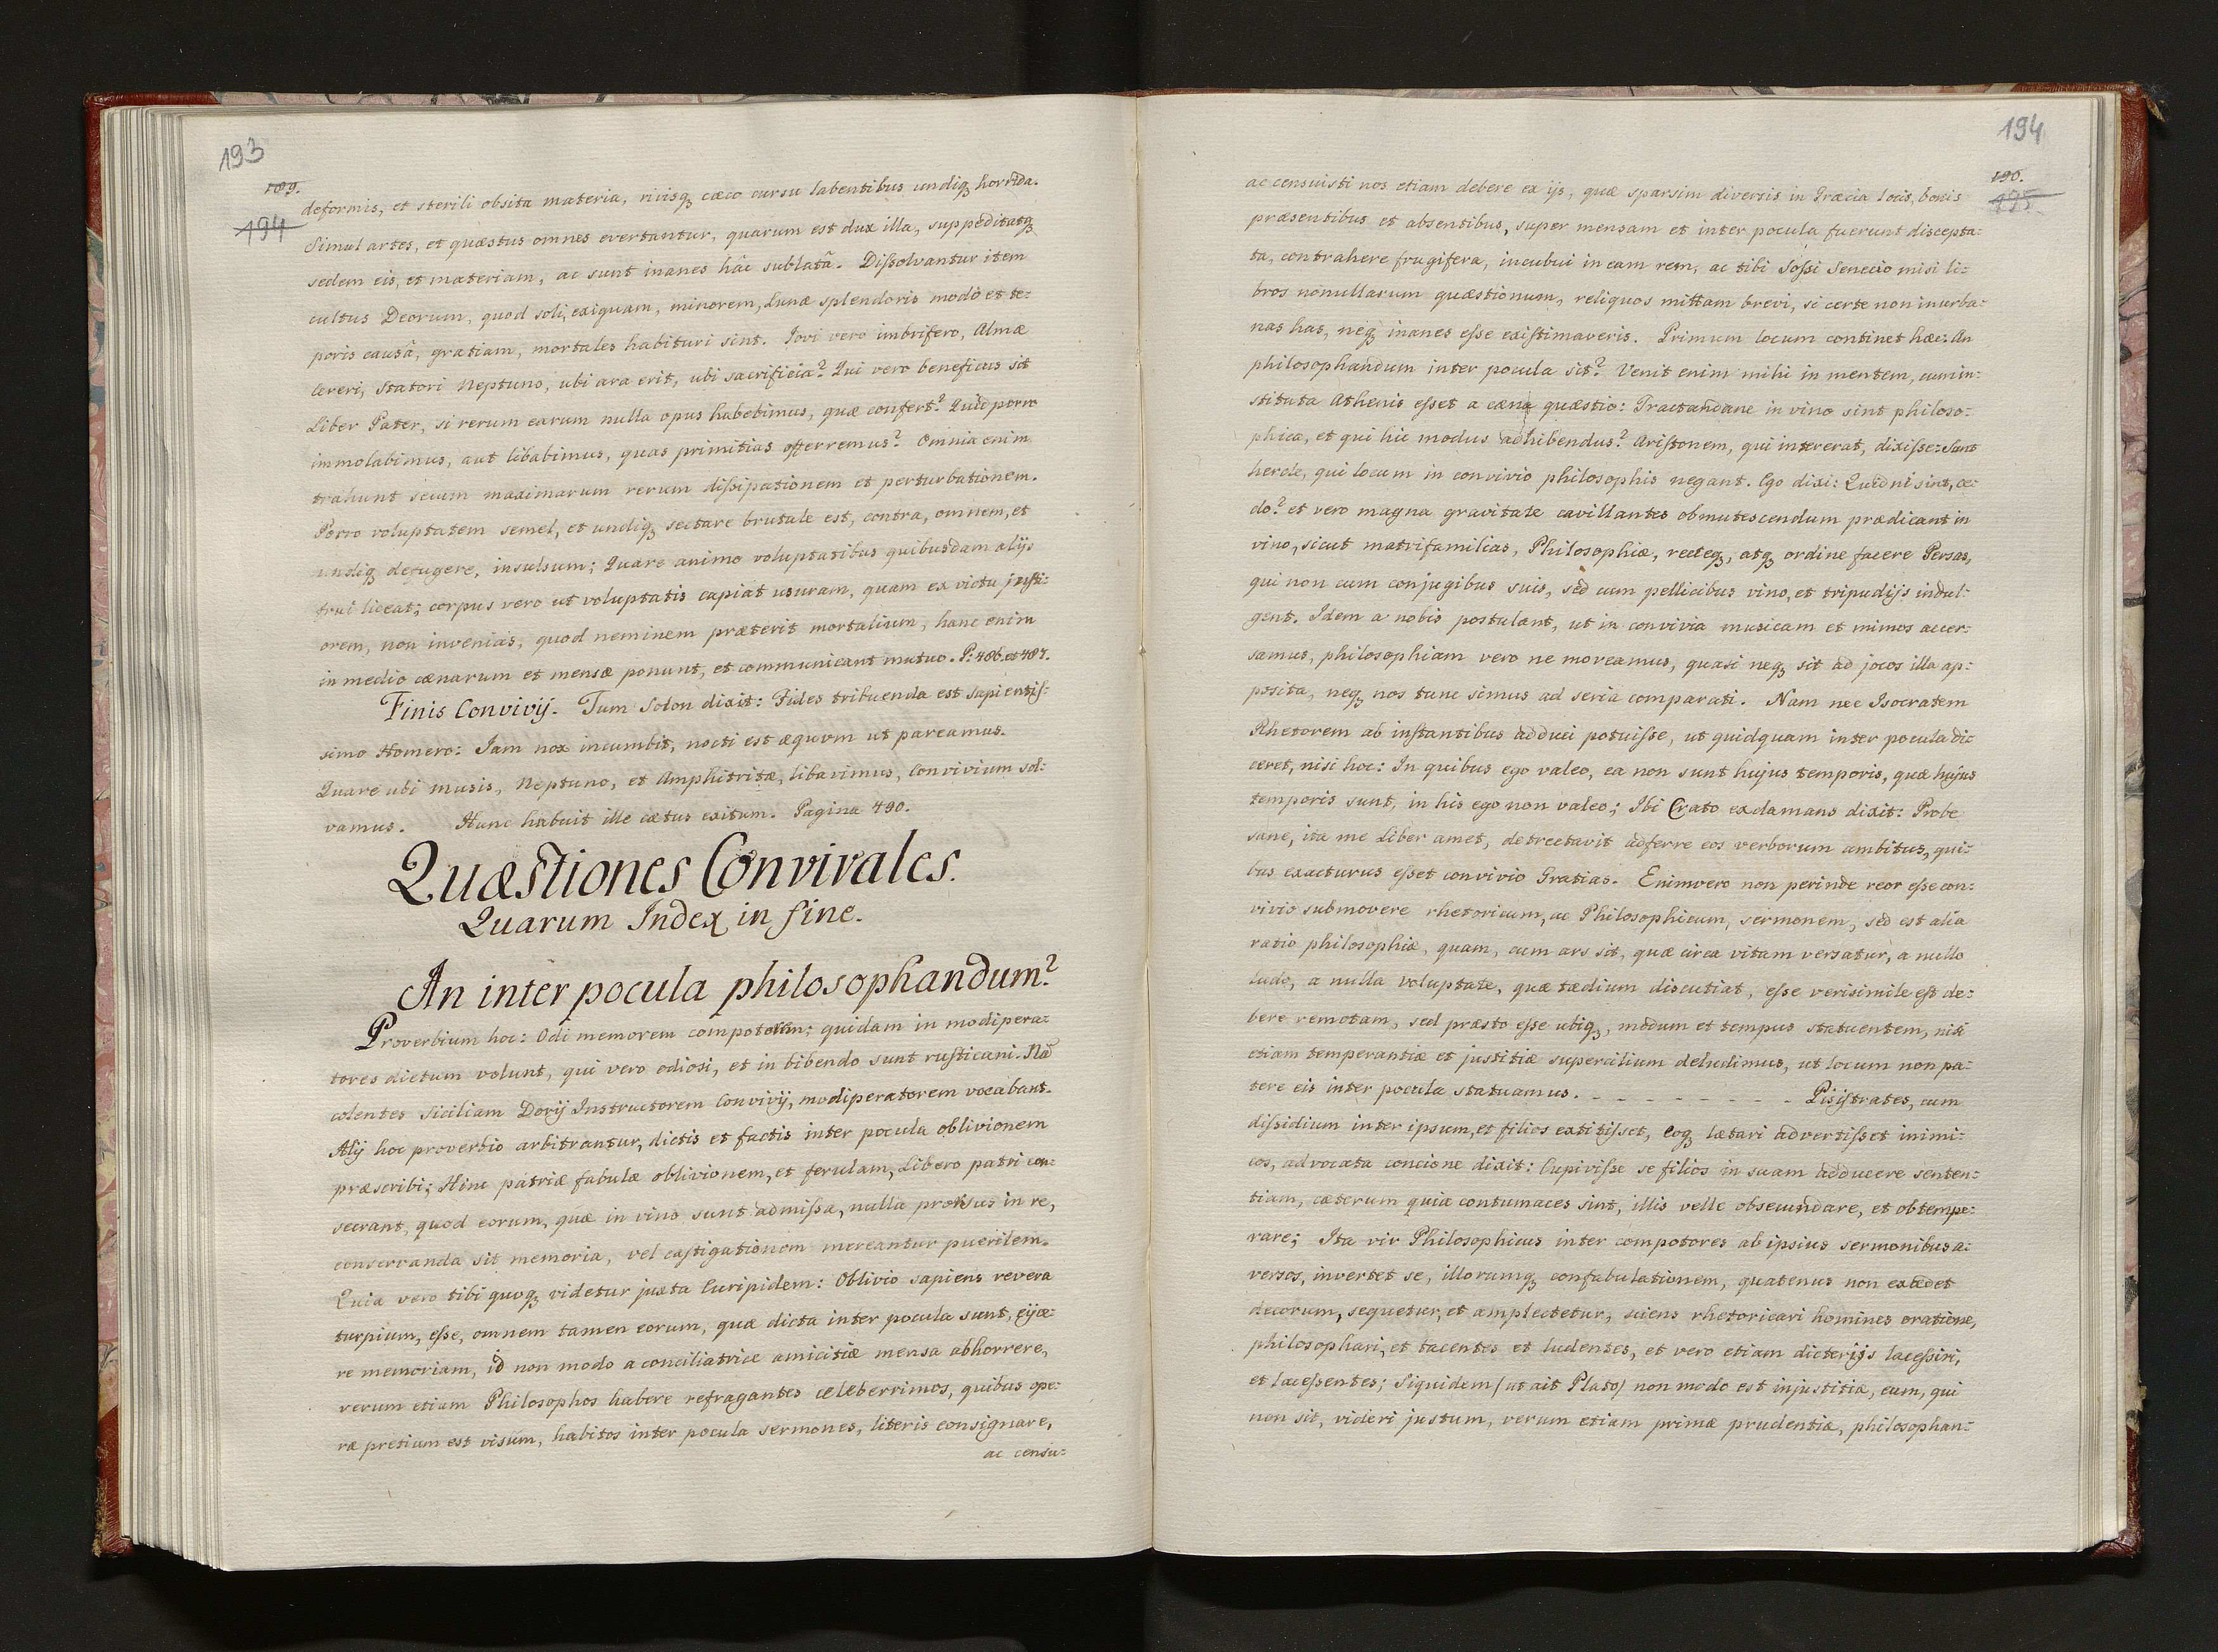 193
189.
194
deformis, et sterili obsita materia, rivisq; cæco cursu labentibus undiq; horrida.
Simul artes, et quæstus omnes evertantur, quarum est dux illa, suppeditatq;
sedem eis, et materiam, ac sunt inanes hâc sublatâ. Dissolvantur item
cultus Deorum, quod soli, exiguam, minorem, Lunæ splendoris modò et te=
poris causâ, gratiam, mortales habituri sint. Jovi vero imbrifero, Almæ
Cereri, Statori Neptuno, ubi ara erit, ubi sacrificia? Qui vero beneficus sit
Liber Pater, si rerum earum nulla opus habebimus, quæ confert? Quid porro
immolabimus, aut libabimus, quas primitias offerremus? Omnia enim
trahunt secum maximarum rerum dissipationem et perturbationem.
Porro voluptatem semel, et undiq; sectare brutale est, contra, omnem, et
undiq; defugere, insulsum; Quare animo voluptatibus quibusdam alijs
frui liceat; corpus vero ut voluptatis capiat usuram, quam ex victu justi=
orem, non invenias, quod neminem præterit mortalium, hanc enim
in medio cænarum et mensæ ponunt, et communicant mutuo. P: 486. et 487.
Finis Convivij. Tum Solon dixit: Fides tribuenda est sapientis=
simo Homero: Jam nox incumbit, nocti est æquum ut pareamus.
Quare ubi musis, Neptuno, et Amphitritæ, libavimus, Convivium sol=
vamus. Hunc habuit ille cætus exitum. Pagina 490.
Quæstiones Convivales.
Quarum Index in fine.
An inter pocula philosophandum?
Proverbium hoc: Odi memorem compotorem; quidam in modipera=
tores dictum volunt, qui vero odiosi, et in bibendo sunt rusticani. Nã
colentes Siciliam Dorij Instructorem Convivij, modiperatorem vocabant.
Alij hoc proverbio arbitrantur, dictis et factis inter pocula oblivionem
præscribi; Hinc patriæ fabulæ oblivionem, et ferulam, Libero patri con=
secrant, quod eorum, quæ in vino sunt admissa, nulla prorsus in re,
conservanda sit memoria, vel castigationem mereantur puerilem.
Quia vero tibi quoq; videtur juxta Euripidem: Oblivio sapiens revera
turpium, esse, omnem tamen eorum, quæ dicta inter pocula sunt, ejice=
re memoriam, id non modo a conciliatrice amicitiæ mensa abhorrere,
verum etiam Philosophos habere refragantes celeberrimos, quibus ope=
ræ pretium est visum, habitos inter pocula sermones, literis consignare,
ac censu=
194
190.
195
ac censuisti nos etiam debere ex ijs, quæ sparsim diversis in Græcia locis, bonis
præsentibus et absentibus, super mensam et inter pocula fuerunt discepta=
ta, contrahere frugifera, incubui in eam rem, ac tibi Sossi Senecio misi li=
bros nonullarum quæstionum, reliquos mittam brevi, si certe non inurba=
nas has, neq; inanes esse existimaveris. Primum locum continet hæc: An
philosophandum inter pocula sit? Venit enim mihi in mentem, cum in=
stituta Athenis esset a cæna quæstio: Tractandane in vino sint philoso=
phica, et qui hic modus adhibendus? Aristonem, qui intererat, dixisse: Sunt
hercle, qui locum in convivio philosophis negant. Ego dixi: Quidni sint, ce=
do? et vero magna gravitate cavillantes obmutescendum prædicant in
vino, sicut matrifamilias, Philosophiæ, recteq; atq; ordine facere Persas,
qui non cum conjugibus suis, sed cum pellicibus vino, et tripudijs indul=
gent. Idem a nobis postulant, ut in convivia musicam et mimos accer=
samus, philosophiam vero ne moveamus, quasi neq; sit ad jocos illa ap=
posita, neq; nos tunc simus ad seria comparati. Nam nec Isocratem
Rhetorem ab instantibus adduci potuisse, ut quidquam inter pocula di=
ceret, nisi hoc: In quibus ego valeo, ea non sunt hujus temporis, quæ hujus
temporis sunt, in his ego non valeo; Ibi Crato exclamans dixit: Probe
sane, ita me Liber amet, detrectavit adferre eos verborum ambitus, qui=
bus exacturus esset convivio Gratias. Enimvero non perinde reor esse con=
vivio submovere rhetoricum, ac Philosophicum, sermonem, sed est alia
ratio philosophiæ, quam, cum ars sit, quæ circa vitam versatur, a nullo
ludo, a nulla voluptate, quæ tædium discutiat, esse verisimile est de=
bere remotam, sed præsto esse ubiq;, modum et tempus statuentem, nisi
etiam temperantiæ et justitiæ supercilium deludimus, ut locum non pa=
tere eis inter pocula statuamus. - - - - - - - - - Pisistrates, cum
dissidium inter ipsum, et filios extitisset, eoq; lætari advertisset inimi=
cos, advocata concione dixit: Cupivisse se filios in suam adducere senten=
tiam, cæterum quia contumaces sint, illis velle obsecundare, et obtempe=
rare; Ita vir Philosophicus inter compotores ab ipsius sermonibus a=
versos, invertet se, illorumq; confabulationem, quatenus non excedet
decorum, sequetur, et amplectetur, sciens rhetoricari homines oratione,
philosophari, et tacentes et ludentes, et vero etiam dicterijs lacessiri,
et lacessentes; Siquidem (ut ait Plato) non modo est injustitia, eum, qui
non sit, videri justum, verum etiam primæ prudentiæ, philosophan=